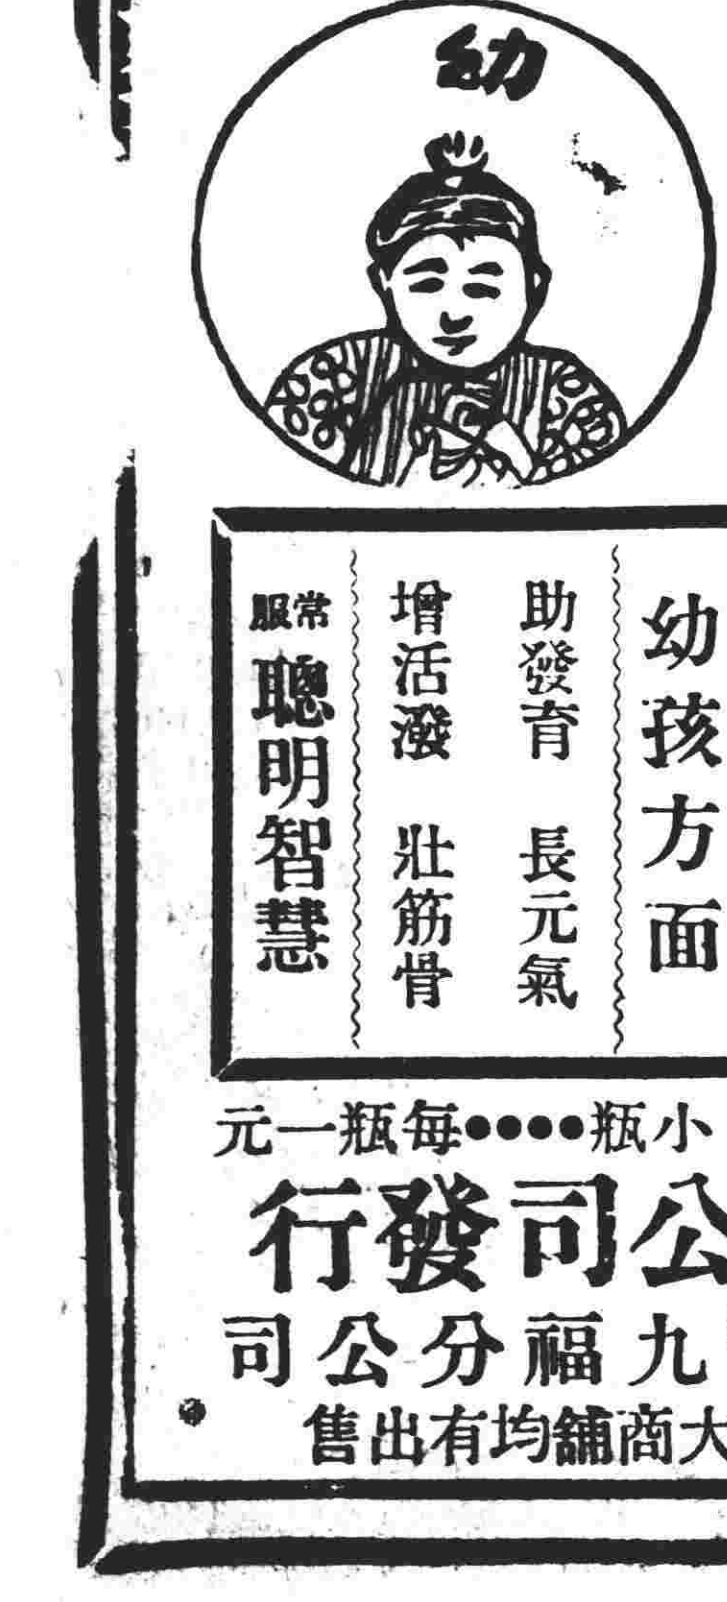 幼
幼孩方面
助發育 長元氣
增活潑 壯筋骨
常服 聰明智慧
小瓶●●●●每瓶一元
公司發行
九福分公司
大商舖均有出售